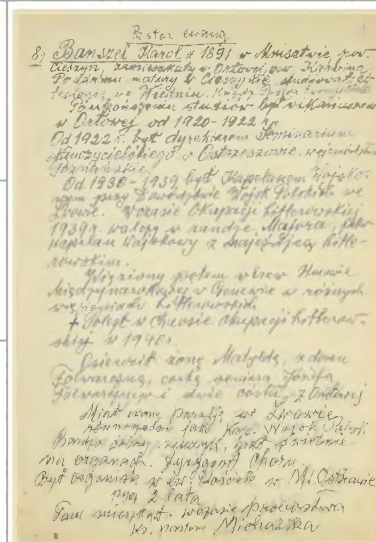 Pastor ewang.
8) Banszel Karol * 1891 w Mnisztwie, pow.
Cieszyn, zamieszkały w Orłowej, pow. Karwina.
Po zdaniu matury w Cieszynie studiował
we Wiedniu.
Po ukończeniu studiów był wikariuszem
w Orłowej od 1920-1922 r.
Od 1922 r. był dyrektorem Seminarium
Nauczycielskiego w Ostrzeszowie, województwo
Poznańskie.
Od 1930-1939 był Kapelanem Wojsko-
wym przy Dowództwie Wojsk Polskich we
Lwowie. W czasie okupacji hitlerowskiej
1939 r. walczył w randze Majora, jako
kapelan Wojskowy z najeźdźcą hitle-
rowskim.
Więziony potem wbrew Umowie
Międzynarodowej w Genewie w różnych
więzieniach hitlerowskich.
† Poległ w czasie okupacji hitlerow-
skiej w 1940 r.
Osierocił żonę Matyldę, z domu
Folwarczną, córkę seniora Józefa
Folwarcznego i dwie córki, z Orłowej
Miał swoją parafię we Lwowie,
jako Kap. Wojsk Polski
Bardzo dobry muzyk, grał świetnie
na organach. Dyrygent Chóru.
Był organistą w kościele w M. Ostrawie
przez 2 lata
Tam mieszkał w czasie
ks. pastora Michalika